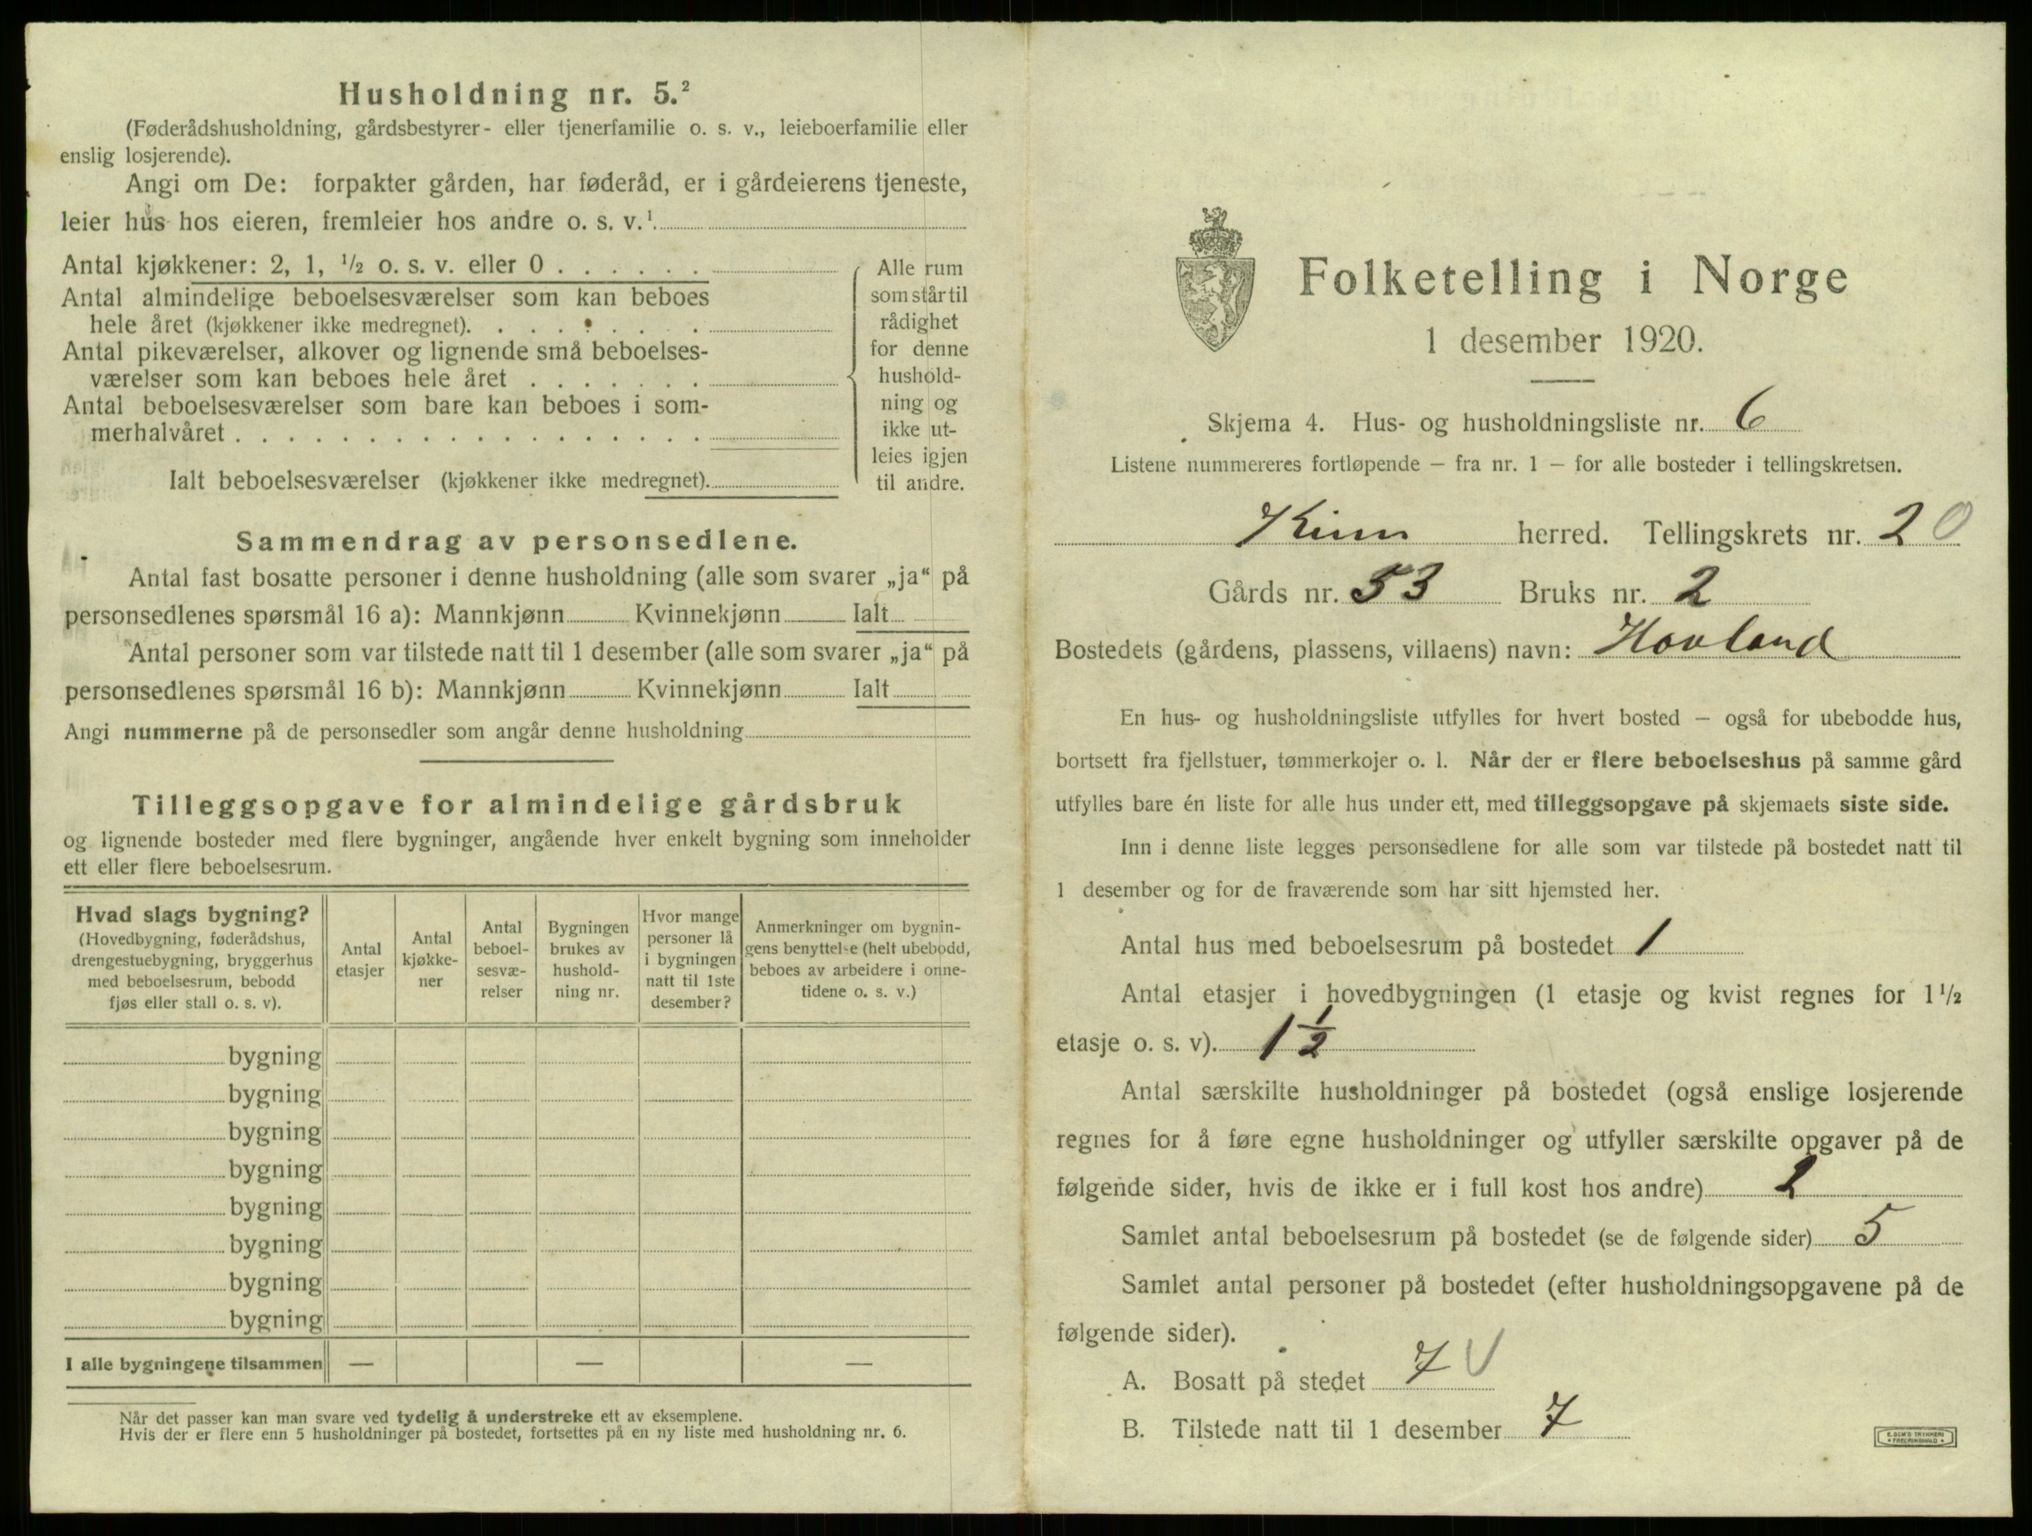 Husholdning nr. 5.²
(Føderådshusholdning, gårdsbestyrer- eller tjenerfamilie o. s. v., leieboerfamilie eller
enslig losjerende).
Angi om De: forpakter gården, har føderåd, er i gårdeierens tjeneste,
leier hus hos eieren, fremleier hos andre o. s. v.¹
Antal kjøkkener: 2, 1, ½ o. s. v. eller 0 . . . . . .
Antal almindelige beboelsesværelser som kan beboes
hele året (kjøkkener ikke medregnet). . . . . . . .
Antal pikeværelser, alkover og lignende små beboelses-
værelser som kan beboes hele året . . . . . . .
Antal beboelsesværelser som bare kan beboes i som-
merhalvåret . . . . . . . . . . . . . . . . . .
Ialt beboelsesværelser (kjøkkener ikke medregnet).
Alle rum
som står til
rådighet
for denne
hushold-
ning og
ikke ut-
leies igjen
til andre.
Sammendrag av personsedlene.
Antal fast bosatte personer i denne husholdning (alle som svarer „ja“ på
personsedlenes spørsmål 16 a): Mannkjønn Kvinnekjønn Ialt
Antal personer som var tilstede natt til 1 desember (alle som svarer „ja“ på
personsedlenes spørsmål 16 b): Mannkjønn Kvinnekjønn Ialt
Angi nummerne på de personsedler som angår denne husholdning
Tilleggsopgave for almindelige gårdsbruk
og lignende bosteder med flere bygninger, angående hver enkelt bygning som inneholder
ett eller flere beboelsesrum.
Hvad slags bygning?
(Hovedbygning, føderådshus,
drengestuebygning, bryggerhus
med beboelsesrum, bebodd
fjøs eller stall o. s. v).
Antal
etasjer
Antal
kjøkke-
ner
Antal
beboel-
sesvæ-
relser
Bygningen
brukes av
hushold-
ning nr.
Hvor mange
personer lå
i bygningen
natt til 1ste
desember?
Anmerkninger om bygnin-
gens benyttelse (helt ubebodd,
beboes av arbeidere i onne-
tidene o. s. v.)
bygning
bygning
bygning
bygning
bygning
bygning
bygning
bygning
I alle bygningene tilsammen — — —
Når det passer kan man svare ved tydelig å understreke ett av eksemplene.
Hvis der er flere enn 5 husholdninger på bostedet, fortsettes på en ny liste med husholdning nr. 6.
Folketelling i Norge
1 desember 1920.
Skjema 4. Hus- og husholdningsliste nr. 6
Listene nummereres fortløpende – fra nr. 1 – for alle bosteder i tellingskretsen.
Kinn herred. Tellingskrets nr. 20
Gårds nr. 53 Bruks nr. 2
Bostedets (gårdens, plassens, villaens) navn: Hovland
En hus- og husholdningsliste utfylles for hvert bosted – også for ubebodde hus,
bortsett fra fjellstuer, tømmerkojer o. l. Når der er flere beboelseshus på samme gård
utfylles bare én liste for alle hus under ett, med tilleggsopgave på skjemaets siste side.
Inn i denne liste legges personsedlene for alle som var tilstede på bostedet natt til
1 desember og for de fraværende som har sitt hjemsted her.
Antal hus med beboelsesrum på bostedet 1
Antal etasjer i hovedbygningen (1 etasje og kvist regnes for 1½
etasje o. s. v). 1½
Antal særskilte husholdninger på bostedet (også enslige losjerende
regnes for å føre egne husholdninger og utfyller særskilte opgaver på de
følgende sider, hvis de ikke er i full kost hos andre) 2
Samlet antal beboelsesrum på bostedet (se de følgende sider) 5
Samlet antal personer på bostedet (efter husholdningsopgavene på de
følgende sider).
A. Bosatt på stedet 7 V
B. Tilstede natt til 1 desember 7